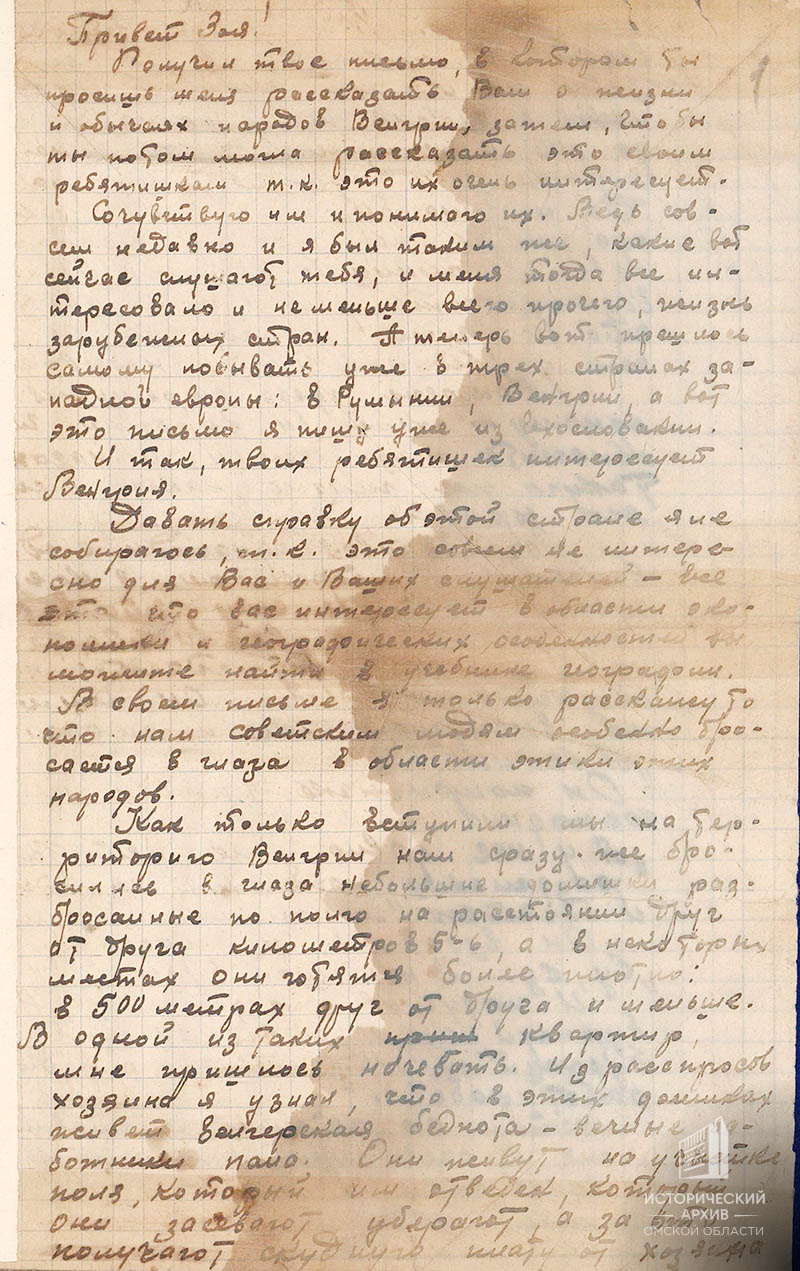 Привет Зоя!
Получил твое письмо, в котором ты
просишь меня рассказать Вам о жизни
и обычаях народов Венгрии, затем, чтобы
ты потом могла рассказать это своим
ребятишкам т.к. это их очень интересует.
Сочувствую им и понимаю их. Ведь сов-
сем недавно и я был таким же, какие вот
сейчас слушают тебя, и меня тогда все ин-
тересовало и не меньше всего прочего, жизнь
зарубежных стран. А теперь вот пришлось
самому побывать уже в трех странах за-
падной европы: в Румынии, Венгрии, а вот
это письмо я пишу уже из Чехословакии.
И так, твоих ребятишек интересует
Венгрия.
Давать справку об этой стране я не
собираюсь, т.к. это совсем не интере-
сно для Вас и Ваших слушателей – все
это что вас интересует в области эко-
номики и географических особенностей вы
можите найти в учебнике географии.
В своем письме я только расскажу то
что нам советским людям особенно бро-
сается в глаза в области этики этих
народов.
Как только вступили мы на тер-
риторию Венгрии нам сразу-же бро-
сились в глаза небольшие домишки раз-
бросанные по полю на расстоянии друг
от друга километров 5-6, а в некоторых
местах они ютятся более плотно:
в 500 метрах друг от друга и меньше.
В одной из таких квартир,
мне пришлось ночевать. Из расспросов
хозяина я узнал, что в этих домиках
живет венгерская беднота – вечные
ботники пана. Они живут на участке
поля, который им отведен, который
они засевают убирают, а за это
получают скудную плату от хозяина
ИСТОРИЧЕСКИЙ
АРХИВ
ОМСКОЙ ОБЛАСТИ